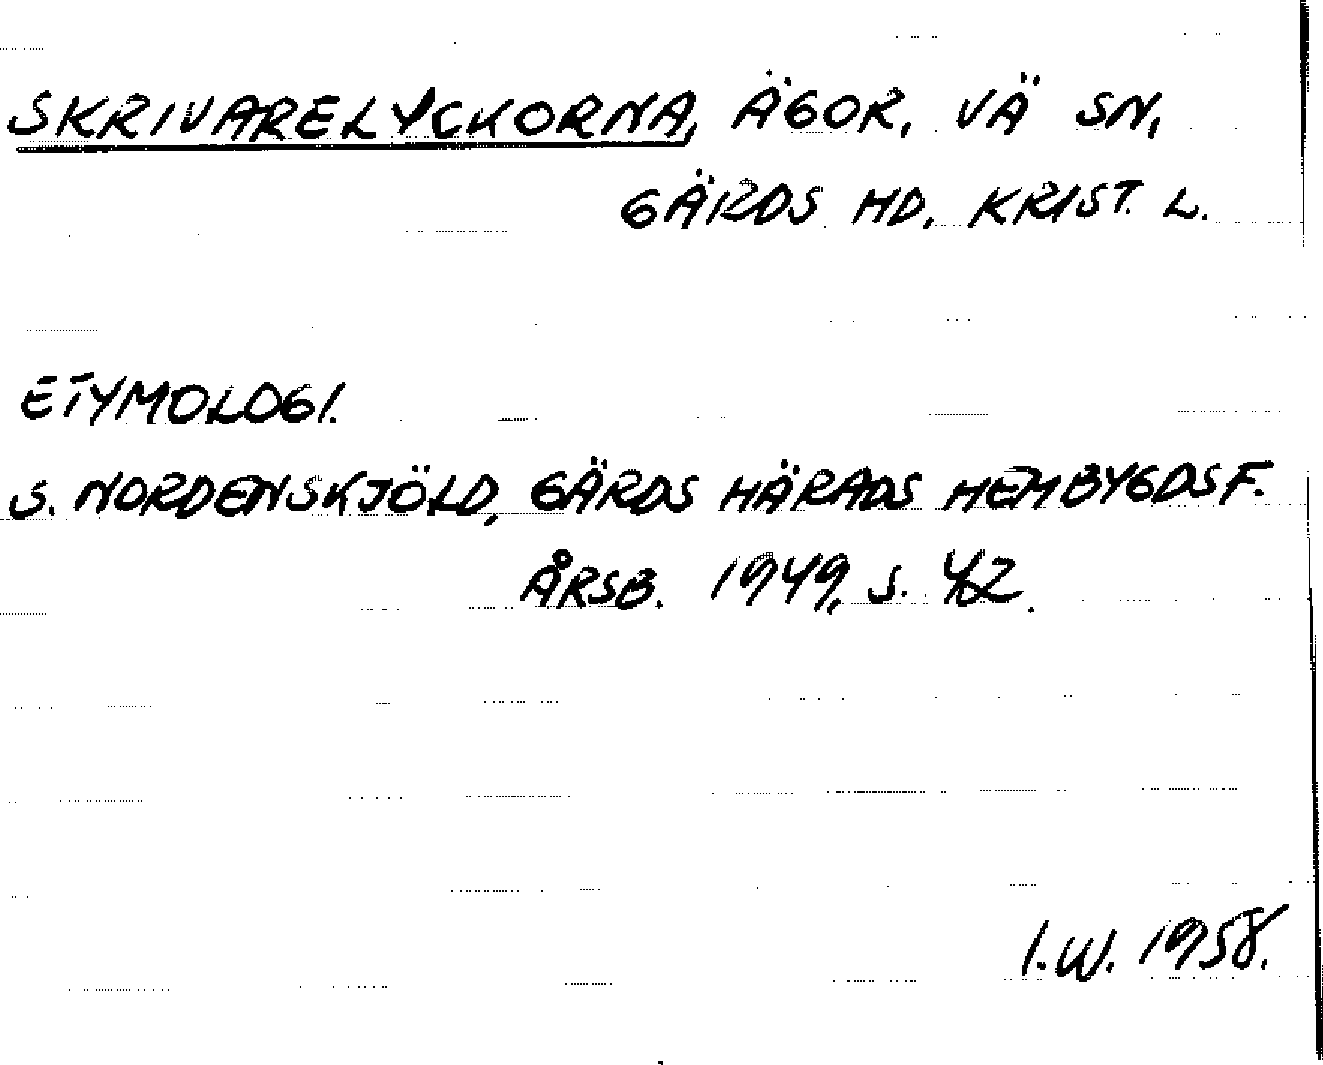 SKRIVARELYCKORNA, ÄGOR, VÄ SN,
GÄRDS HD, KRIST. L.
ETYMOLOGI.
S. NORDENSKJÖLD, GÄRDS HÄRADS HEMBYGDSF.
ÅRSB. 1949, S. 42.
I.W. 1958.